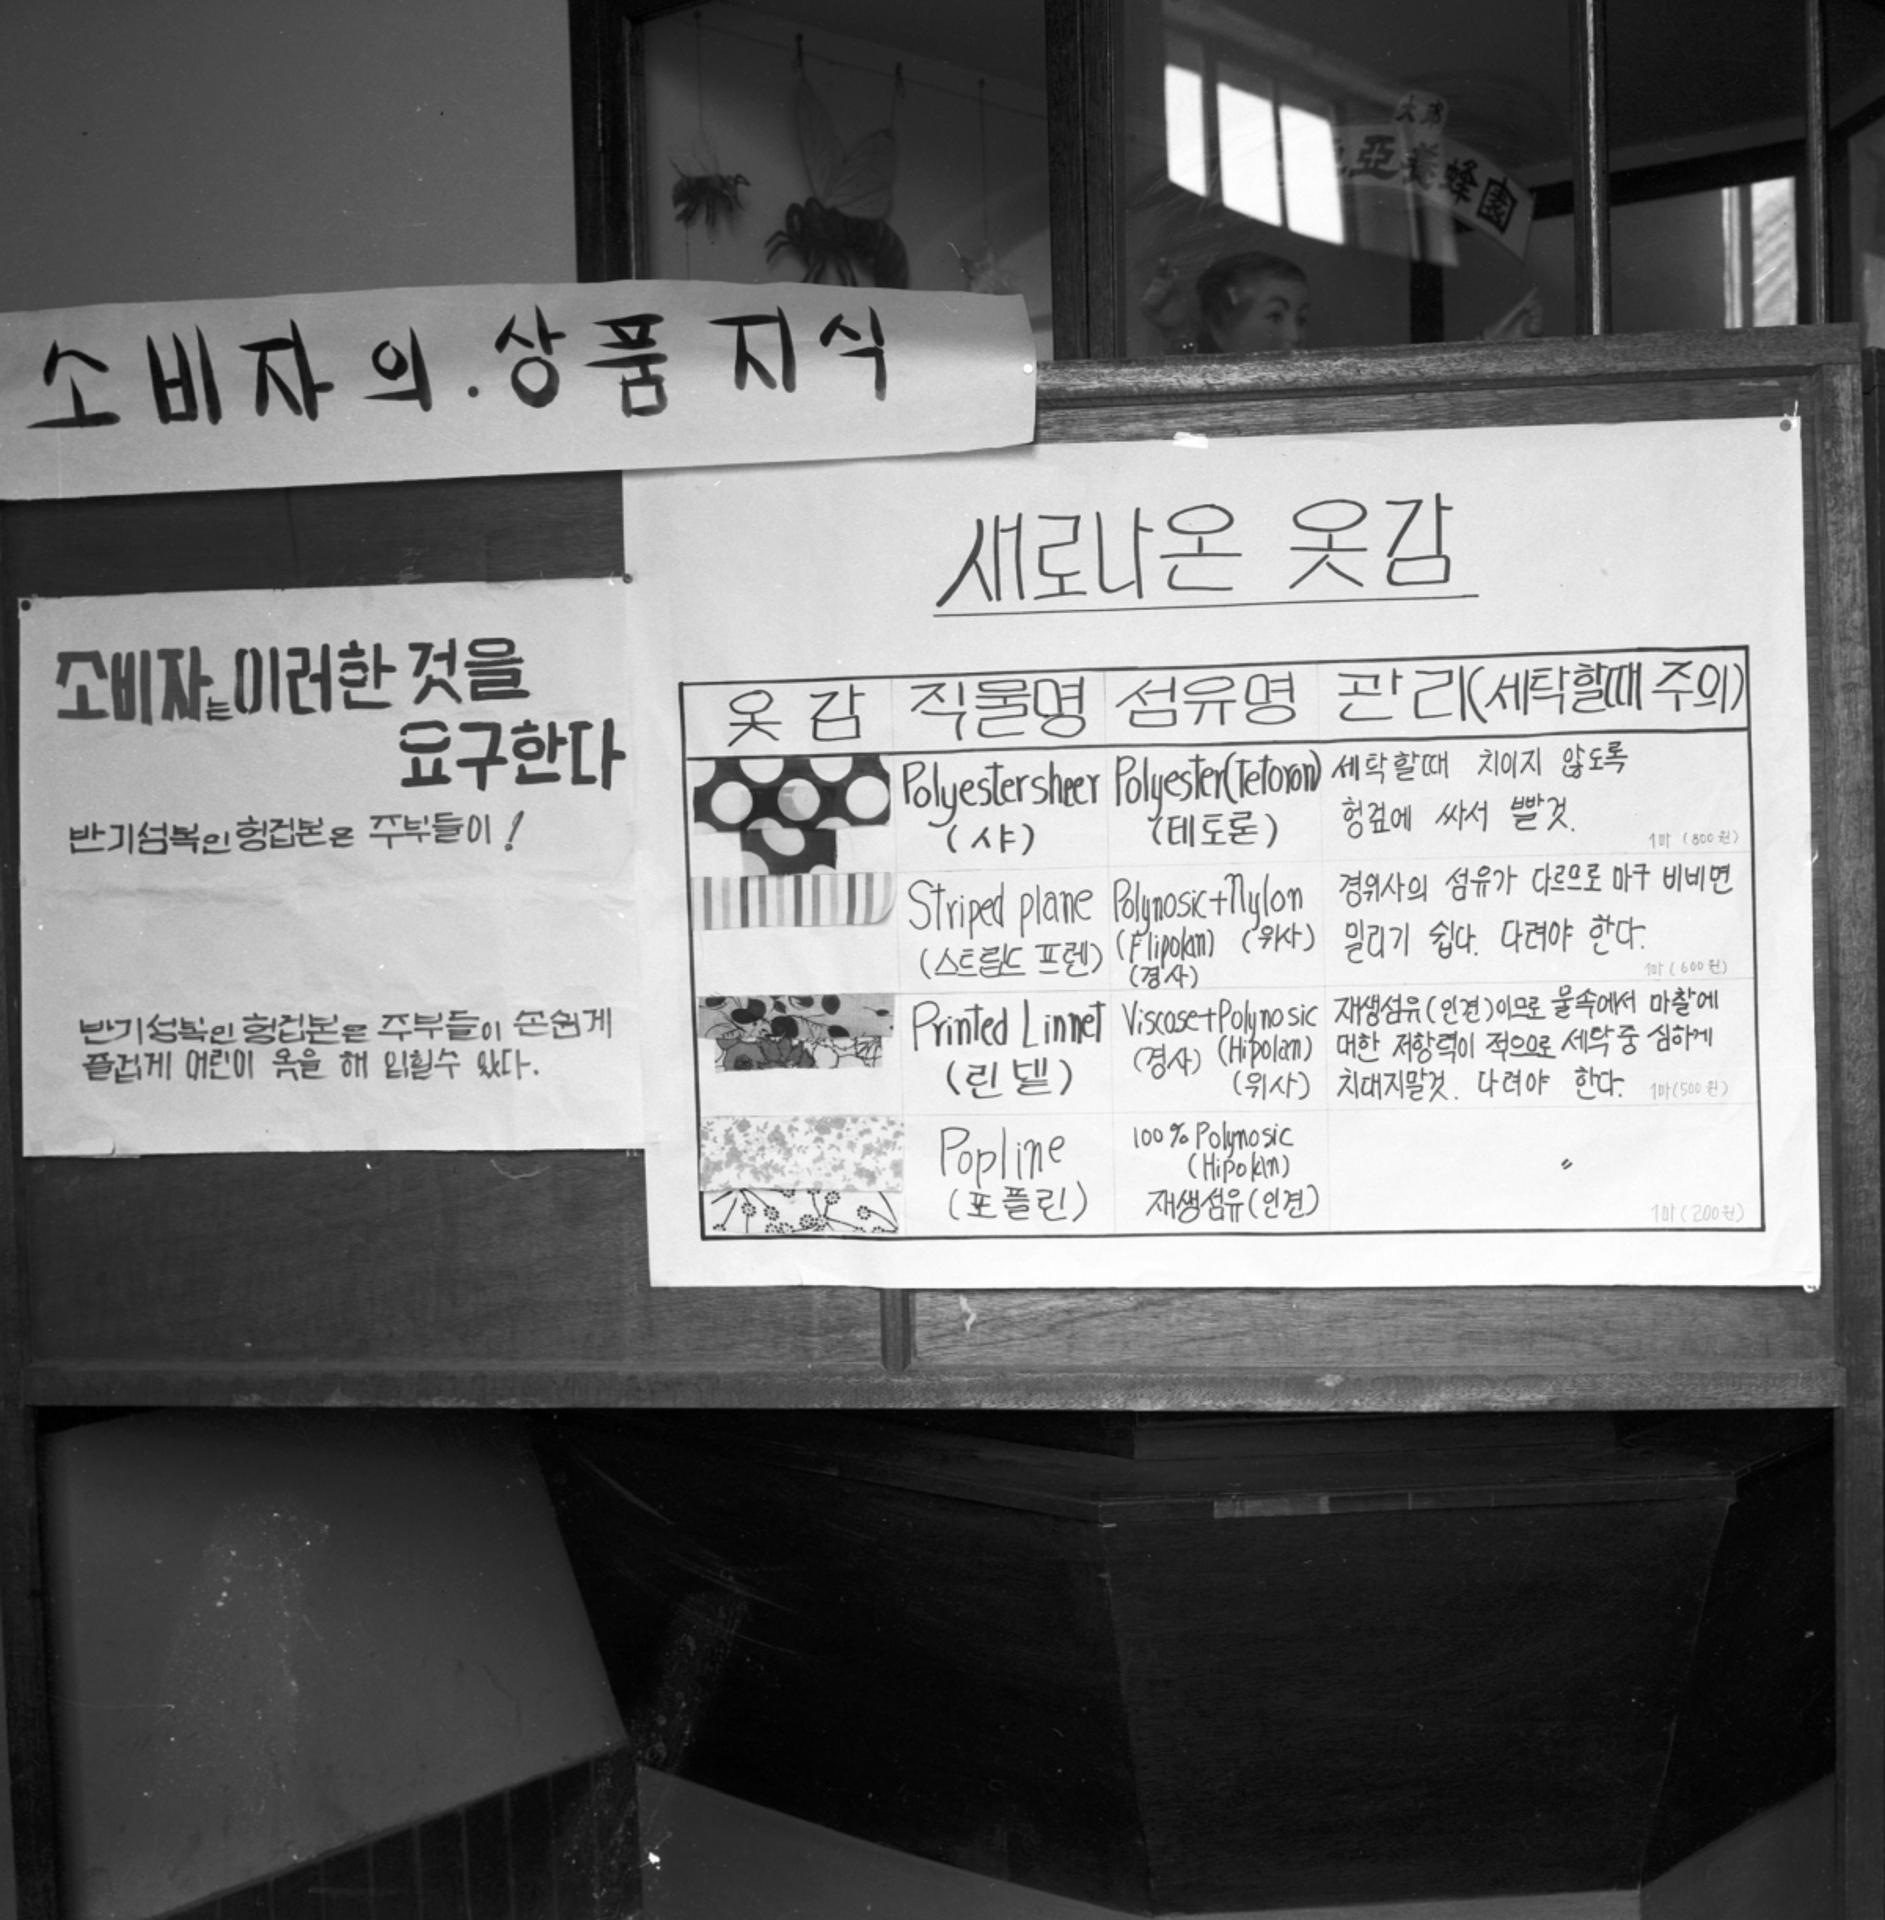 大
亞養蜂園
소비자의·상품 지식
새로나온 옷감
소비자는 이러한 것을
요구한다
반기성복인 헝겊본은 주부들이!
반기성복인 헝겊본은 주부들이 손쉽게
즐겁게 어린이 옷을 해 입힐수 있다.
옷감 직물명 섬유명 관리(세탁할때 주의)
Polyester sheer
(샤)
Polyester(Tetoron)
(테토론)
세탁할때 치이지 않도록
헝겊에 싸서 빨것.
1마 (800원)
Striped plane
(스트립드 프렌)
Polynosic+Nylon
(Hipolan) (위사)
(경사)
경위사의 섬유가 다르므로 마구 비비면
밀리기 쉽다. 다려야 한다.
1마 (600원)
Printed Linnet
(린넬)
Viscose+Polynosic
(경사) (Hipolan)
(위사)
재생섬유(인견)이므로 물속에서 마찰에
대한 저항력이 적으므로 세탁중 심하게
치대지말것. 다려야 한다.
1마(500원)
Popline
(포플린)
100% Polynosic
(Hipolan)
재생섬유(인견)
〃
1마(200원)